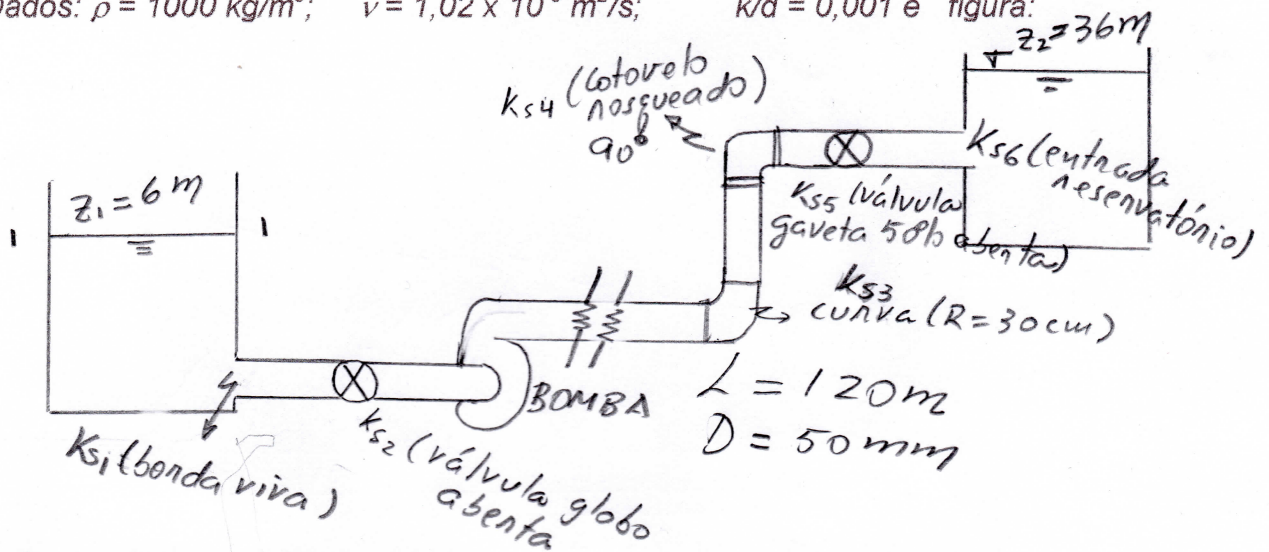 Dados: ρ = 1000 kg/m³; ν = 1,02 x 10 m²/s; k/d = 0,001 e figura:
z₂ = 36 m
Ks4 (cotovelo
rosqueado)
90°
Ks6 (entrada
reservatório)
Ks5 (válvula
gaveta 50% aberta)
z₁ = 6 m
1 1
Ks3
curva (R = 30 cm)
BOMBA
L = 120 m
D = 50 mm
Ks1 (borda viva)
Ks2 (válvula globo
aberta